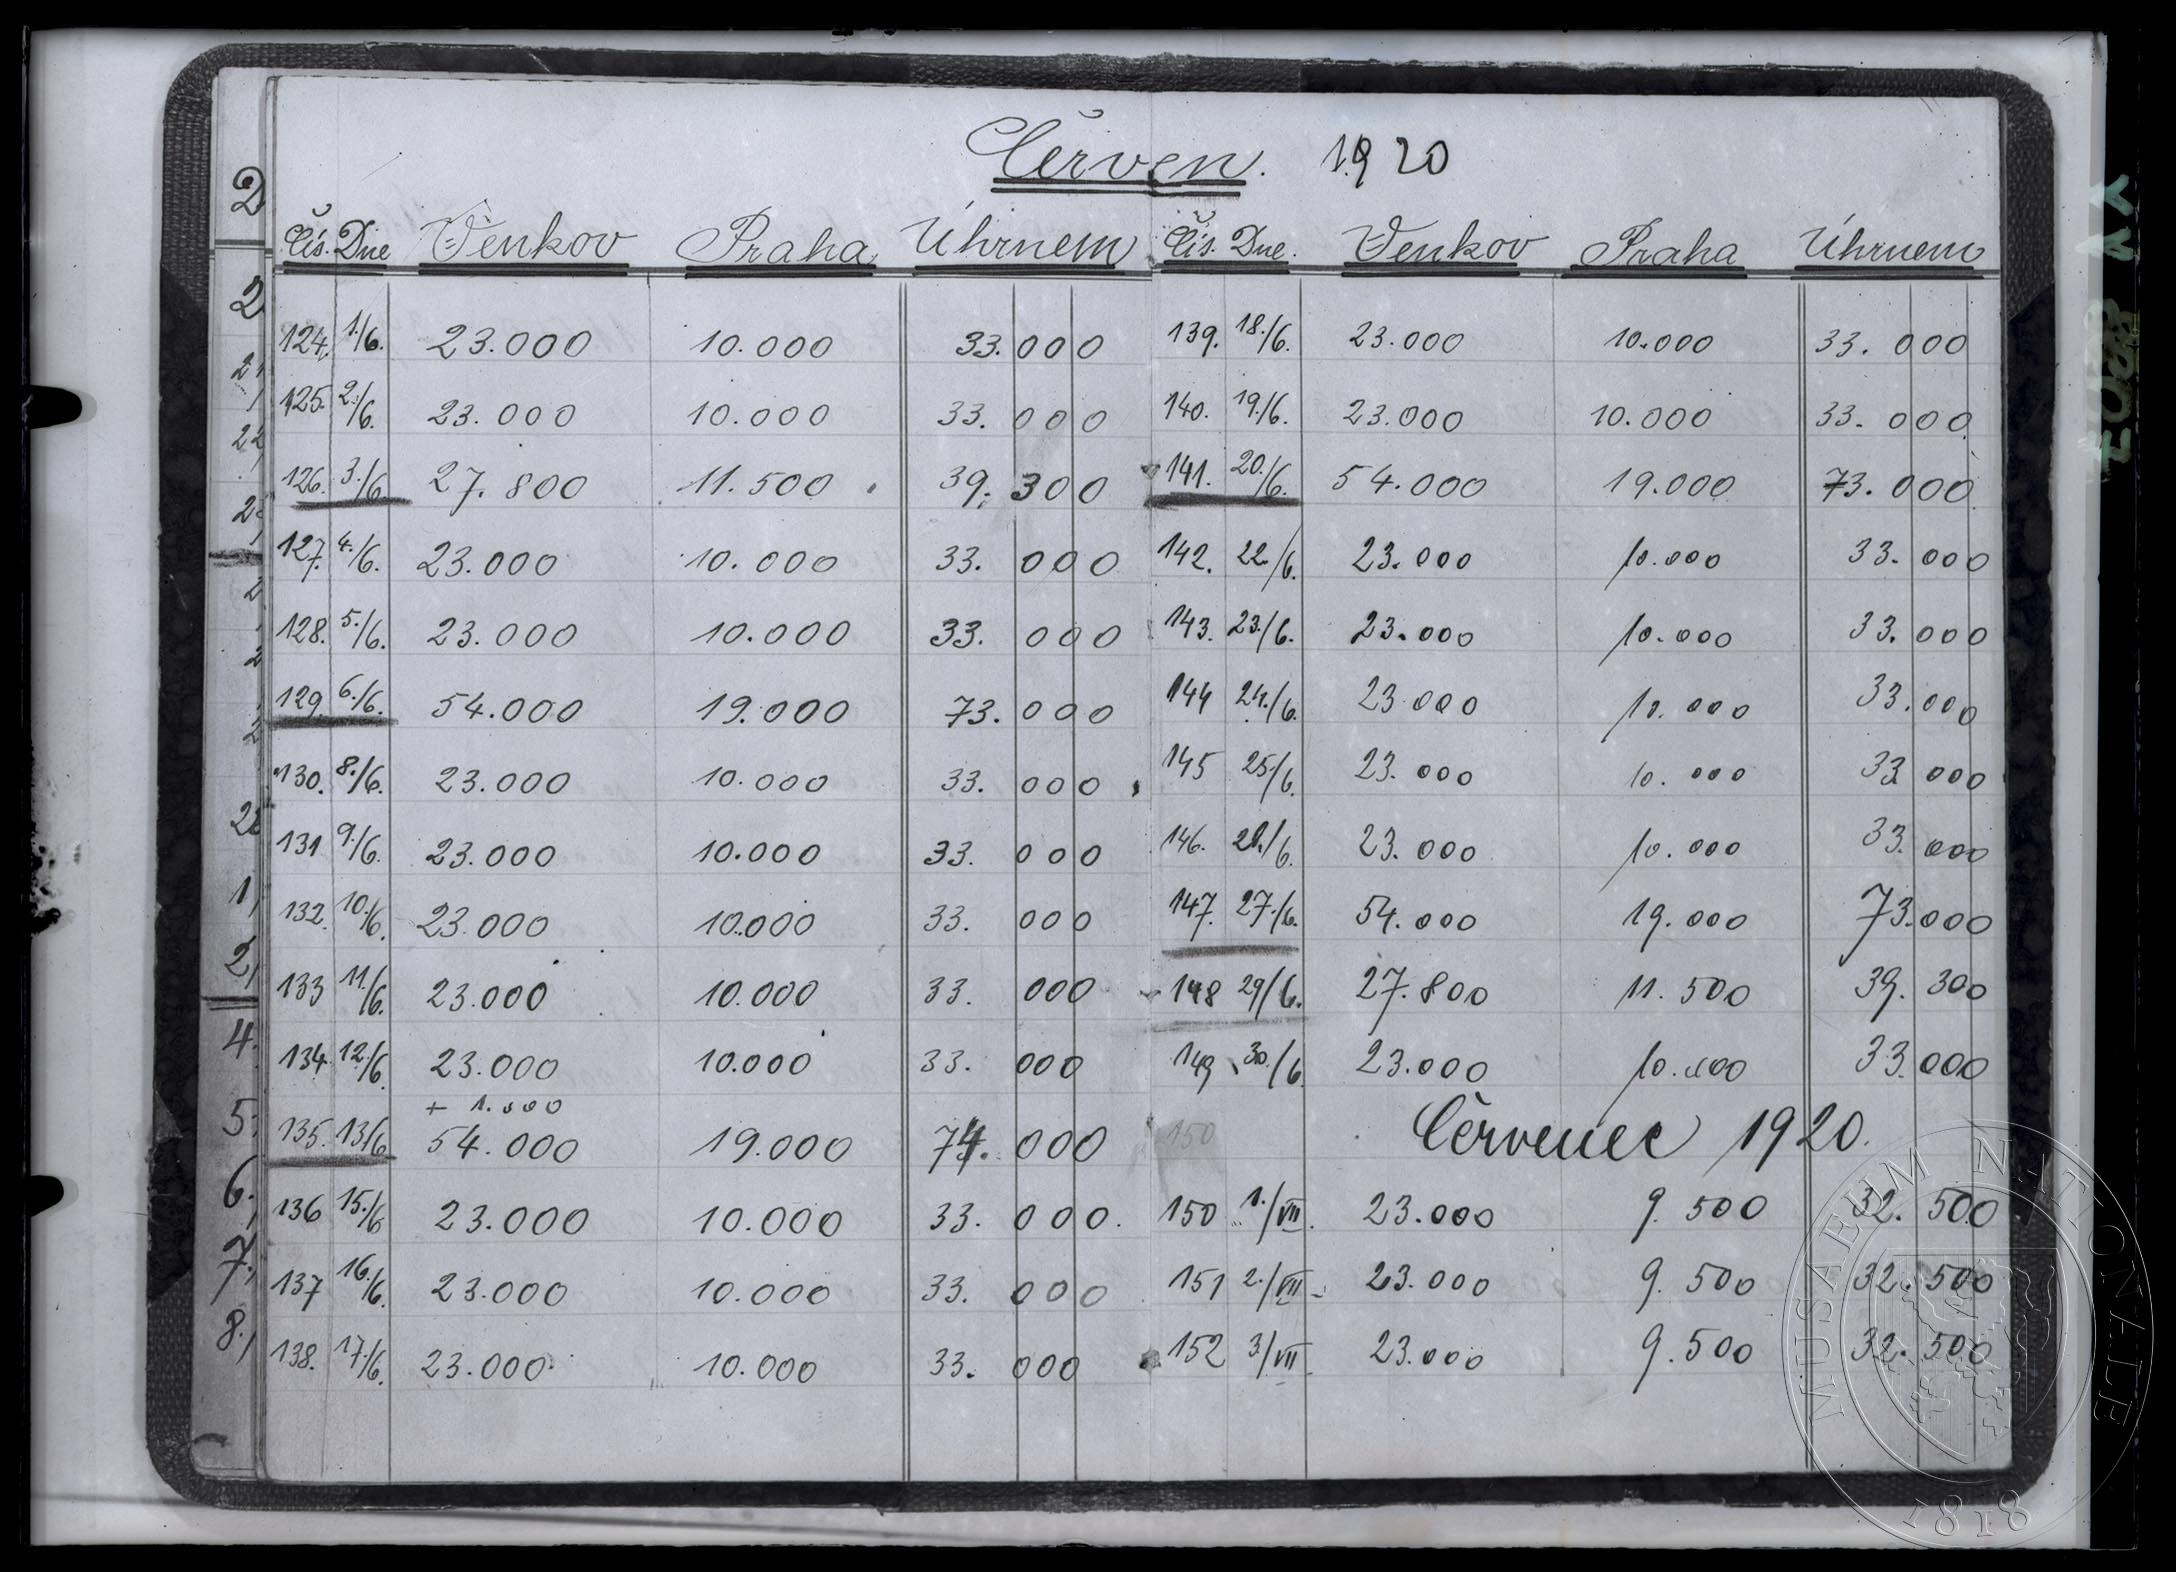 Červen. 1920
Čís. Dne Venkov Praha Úhrnem
124. 1./6. 23.000 10.000 33.000
125. 2./6. 23.000 10.000 33.000
126. 3./6. 27.800 11.500 39.300
127. 4./6. 23.000 10.000 33.000
128. 5./6. 23.000 10.000 33.000
129. 6./6. 54.000 19.000 73.000
130. 8./6. 23.000 10.000 33.000
131 9./6. 23.000 10.000 33.000
132. 10./6. 23.000 10.000 33.000
133 11./6. 23.000 10.000 33.000
134 12./6. 23.000 10.000 33.000
+ 1.000
135. 13/6. 54.000 19.000 74.000
136 15./6. 23.000 10.000 33.000.
137 16./6. 23.000 10.000 33.000
138. 17./6. 23.000 10.000 33.000
Čís. Dne. Venkov Praha Úhrnem
139. 18./6. 23.000 10.000 33.000
140. 19./6. 23.000 10.000 33.000
141. 20./6. 54.000 19.000 73.000
142. 22./6. 23.000 10.000 33.000
143. 23./6. 23.000 10.000 33.000
144 24./6. 23.000 10.000 33.000
145 25./6. 23.000 10.000 33.000
146. 26./6. 23.000 10.000 33.000
147. 27./6. 54.000 19.000 73.000
148 29/6. 27.800 11.500 39.300
149 30./6. 23.000 10.000 33.000
150 Červenec 1920.
150 1./VII. 23.000 9.500 32.500
151 2./VII 23.000 9.500 32.500
152 3/VII 23.000 9.500 32.500
2
2
4.
5.
6.
7.
8.
MUSAEUM NATIONALE
1818